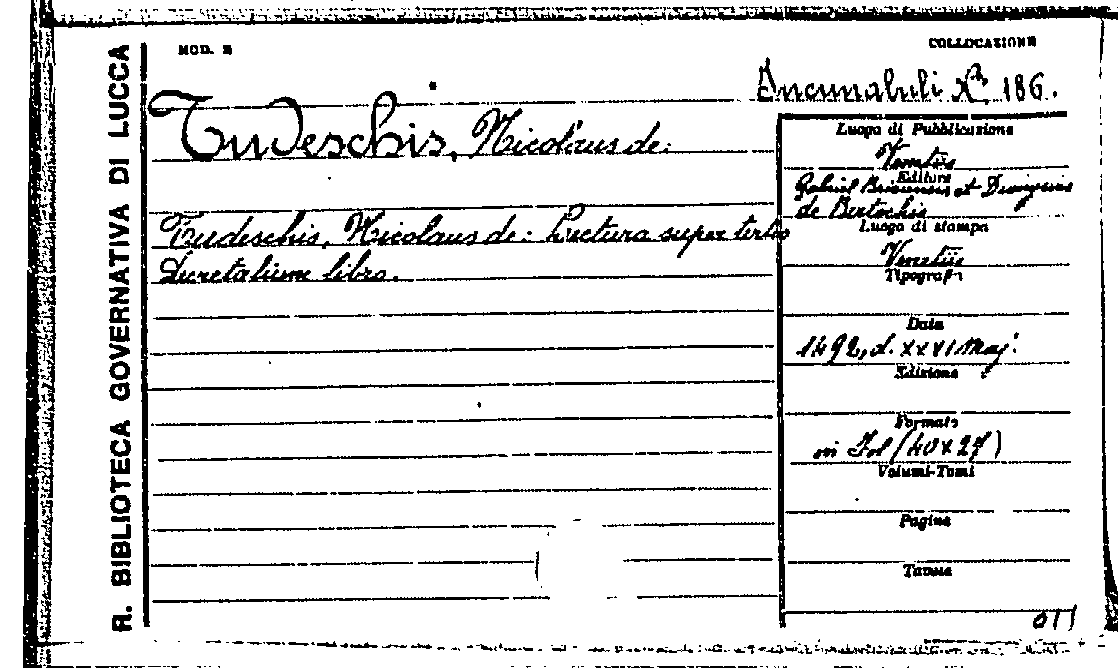 R. BIBLIOTECA GOVERNATIVA DI LUCCA
MOD. B
COLLOCAZIONE
Incunabuli N.º 186.
Tudeschis, Nicolaus de:
Tudeschis, Nicolaus de: Lectura super tertio
Decretalium libro.
Luogo di Pubblicazione
Venetiis
Editore
Gabriel Brixiensis et Dionysius
de Bertochis
Luogo di stampa
Venetiis
Tipografo
Data
1492, d. XXVI Maj.
Edizione
Formato
in Fol (40x27)
Volumi-Tomi
Pagine
Tavole